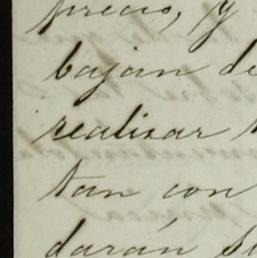 precio, y
bajan de
realizar
tan con
darán su